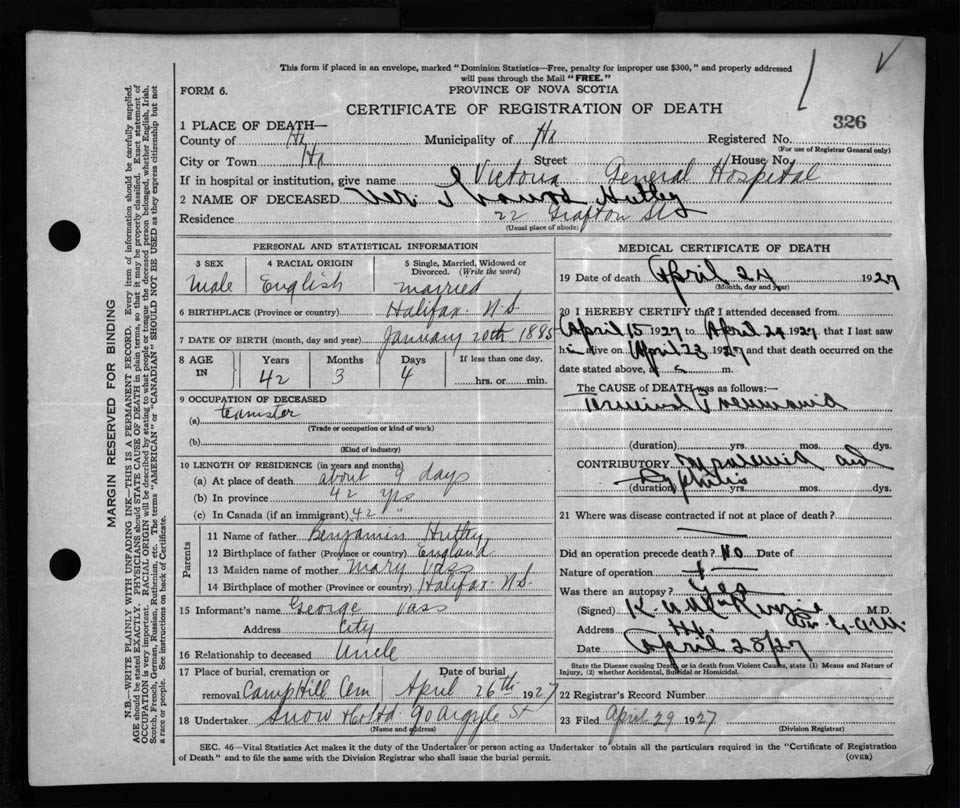 This form if placed in an envelope, marked "Dominion Statistics—Free, penalty for improper use $300," and properly addressed
will pass through the Mail "FREE."
FORM 6.
PROVINCE OF NOVA SCOTIA
CERTIFICATE OF REGISTRATION OF DEATH
326
1 PLACE OF DEATH—
County of Hx Municipality of Hx Registered No.
(For use of Registrar General only)
City or Town Hx Street House No.
If in hospital or institution, give name Victoria General Hospital
2 NAME OF DECEASED Hutley
Residence 22 Grafton St
(Usual place of abode)
PERSONAL AND STATISTICAL INFORMATION
3 SEX 4 RACIAL ORIGIN 5 Single, Married, Widowed or Divorced. (Write the word)
Male English married
6 BIRTHPLACE (Province or country) Halifax N.S.
7 DATE OF BIRTH (month, day and year) January 20th 1885
8 AGE IN Years Months Days If less than one day,
42 3 4 hrs. or min.
9 OCCUPATION OF DECEASED
(a) teamster
(Trade or occupation or kind of work)
(b)
(Kind of industry)
10 LENGTH OF RESIDENCE (in years and months)
(a) At place of death about 9 days
(b) In province 42 yrs
(c) In Canada (if an immigrant) 42 "
Parents
11 Name of father Benjamin Hutley
12 Birthplace of father (Province or country) England
13 Maiden name of mother Mary Vass
14 Birthplace of mother (Province or country) Halifax N.S.
15 Informant's name George Vass
Address City
16 Relationship to deceased Uncle
17 Place of burial, cremation or Date of burial
removal Camp Hill Cem April 26th 1927
18 Undertaker Snow & Co Ltd 90 Argyle St
(Name and address)
MEDICAL CERTIFICATE OF DEATH
19 Date of death April 24 1927
(Month, day and year)
20 I HEREBY CERTIFY that I attended deceased from
April 15 1927 to April 24 1927 that I last saw
him alive on April 23 1927 and that death occurred on the
date stated above, at m.
The CAUSE of DEATH was as follows:—
Terminal Pneumonia
(duration) yrs. mos. dys.
CONTRIBUTORY and
Syphilis
(duration) yrs. mos. dys.
21 Where was disease contracted if not at place of death?
Did an operation precede death? No Date of
Nature of operation
Was there an autopsy? Yes
(Signed) M.D.
Address Hx
Date April 28/27
State the Disease causing Death, or in death from Violent Causes, state (1) Means and Nature of
Injury, (2) whether Accidental, Suicidal or Homicidal.
22 Registrar's Record Number
23 Filed April 29 1927
(Division Registrar)
SEC. 46—Vital Statistics Act makes it the duty of the Undertaker or person acting as Undertaker to obtain all the particulars required in the "Certificate of Registration
of Death" and to file the same with the Division Registrar who shall issue the burial permit.
(OVER)
MARGIN RESERVED FOR BINDING
N.B.—WRITE PLAINLY WITH UNFADING INK—THIS IS A PERMANENT RECORD. Every item of information should be carefully supplied.
AGE should be stated EXACTLY. PHYSICIANS should STATE CAUSE OF DEATH in plain terms, so that it may be properly classified. Exact statement of
OCCUPATION is very important. RACIAL ORIGIN will be described by stating to what people or tongue the deceased person belonged, whether English, Irish,
Scotch, French, German, Russian, Ruthenian, etc. The terms "AMERICAN" or "CANADIAN" SHOULD NOT BE USED as they express citizenship but not
a race or people. See instructions on back of Certificate.